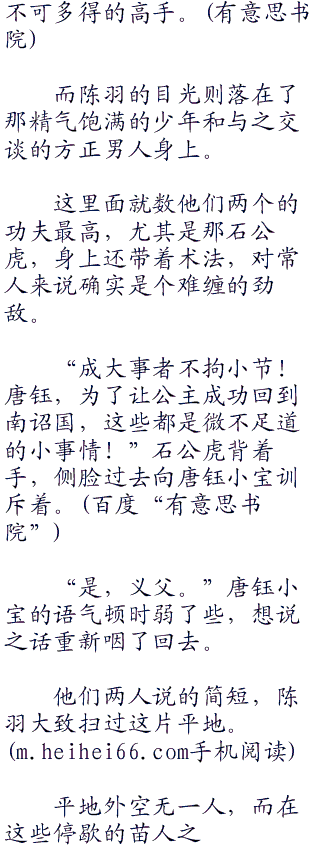 不可多得的高手。(有意思书
院)
而陈羽的目光则落在了
那精气饱满的少年和与之交
谈的方正男人身上。
这里面就数他们两个的
功夫最高，尤其是那石公
虎，身上还带着术法，对常
人来说确实是个难缠的劲
敌。
“成大事者不拘小节！
唐钰，为了让公主成功回到
南诏国，这些都是微不足道
的小事情！”石公虎背着
手，侧脸过去向唐钰小宝训
斥着。(百度“有意思书
院”)
“是，义父。”唐钰小
宝的语气顿时弱了些，想说
之话重新咽了回去。
他们两人说的简短，陈
羽大致扫过这片平地。
(m.heihei66.com手机阅读)
平地外空无一人，而在
这些停歇的苗人之